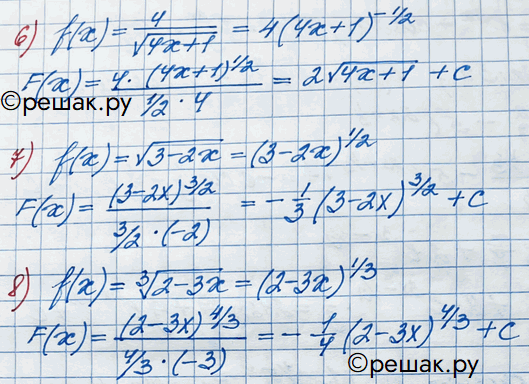 6) f(x) = 4/√(4x+1) = 4(4x+1)^(-1/2)
F(x) = (4·(4x+1)^(1/2))/(1/2·4) = 2√(4x+1) + C
©решак.ру
7) f(x) = √(3-2x) = (3-2x)^(1/2)
F(x) = (3-2x)^(3/2)/(3/2·(-2)) = -1/3(3-2x)^(3/2) + C
8) f(x) = ∛(2-3x) = (2-3x)^(1/3)
F(x) = (2-3x)^(4/3)/(4/3·(-3)) = -1/4(2-3x)^(4/3) + C
©решак.ру